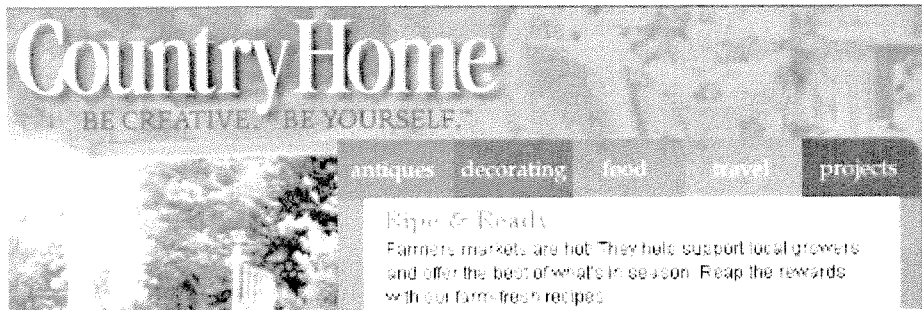 Country Home
BE CREATIVE.™ BE YOURSELF.™
antiques decorating food travel projects
Ripe & Ready
Farmers markets are hot. They help support local growers
and offer the best of what's in season. Reap the rewards
with our farm-fresh recipes